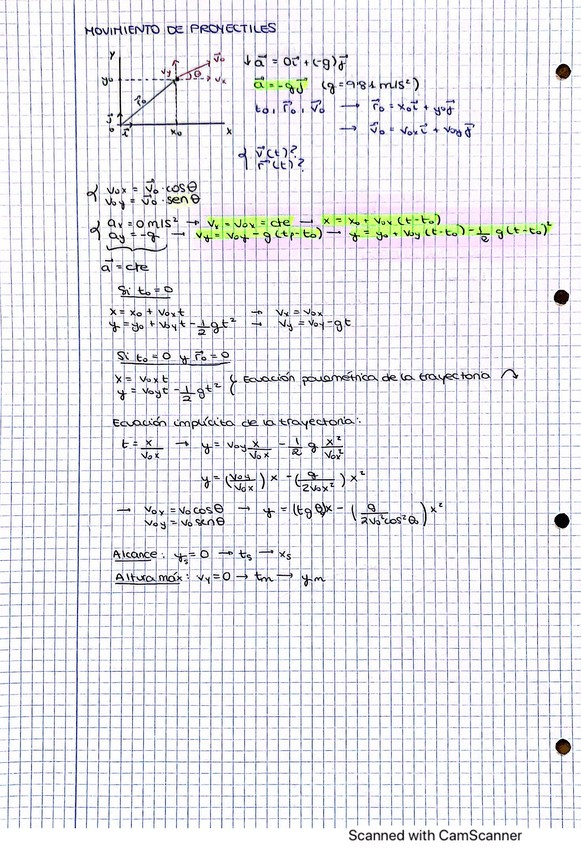 MOVIMIENTO DE PROYECTILES
y
y₀
v⃗y
v⃗₀
θ
v⃗x
r⃗₀
j⃗
0
i⃗
x₀
x
↓ a⃗ = 0i⃗ + (-g)j⃗
a⃗ = -gj⃗ (g = 9'81 m/s²)
t₀, r⃗₀, v⃗₀ → r⃗₀ = x₀i⃗ + y₀j⃗
→ v⃗₀ = v₀ₓi⃗ + v₀yj⃗
{ v⃗(t)?
r⃗(t)?
{ v₀x = v⃗₀ · cosθ
v₀y = v⃗₀ · senθ
{ ax = 0 m/s² → vx = v₀x = cte → x = x₀ + v₀x (t-t₀)
ay = -g → vy = v₀y - g (t-t₀) → y = y₀ + v₀y (t-t₀) - 1/2 g (t-t₀)²
a⃗ = cte
Si t₀ = 0
x = x₀ + v₀xt → vx = v₀x
y = y₀ + v₀yt - 1/2 gt² → vy = v₀y - gt
Si t₀ = 0 y r⃗₀ = 0
x = v₀xt
y = v₀yt - 1/2 gt² { Ecuación paramétrica de la trayectoria
Ecuación implícita de la trayectoria:
t = x/v₀x → y = v₀y x/v₀x - 1/2 g x²/v₀x²
y = (v₀y/v₀x) x - (g/2v₀x²) x²
→ v₀x = v₀cosθ → y = (tgθ)x - (g/2v₀²cos²θ₀) x²
v₀y = v₀senθ
Alcance: ys = 0 → ts → xs
Altura máx: vy = 0 → tm → ym
Scanned with CamScanner